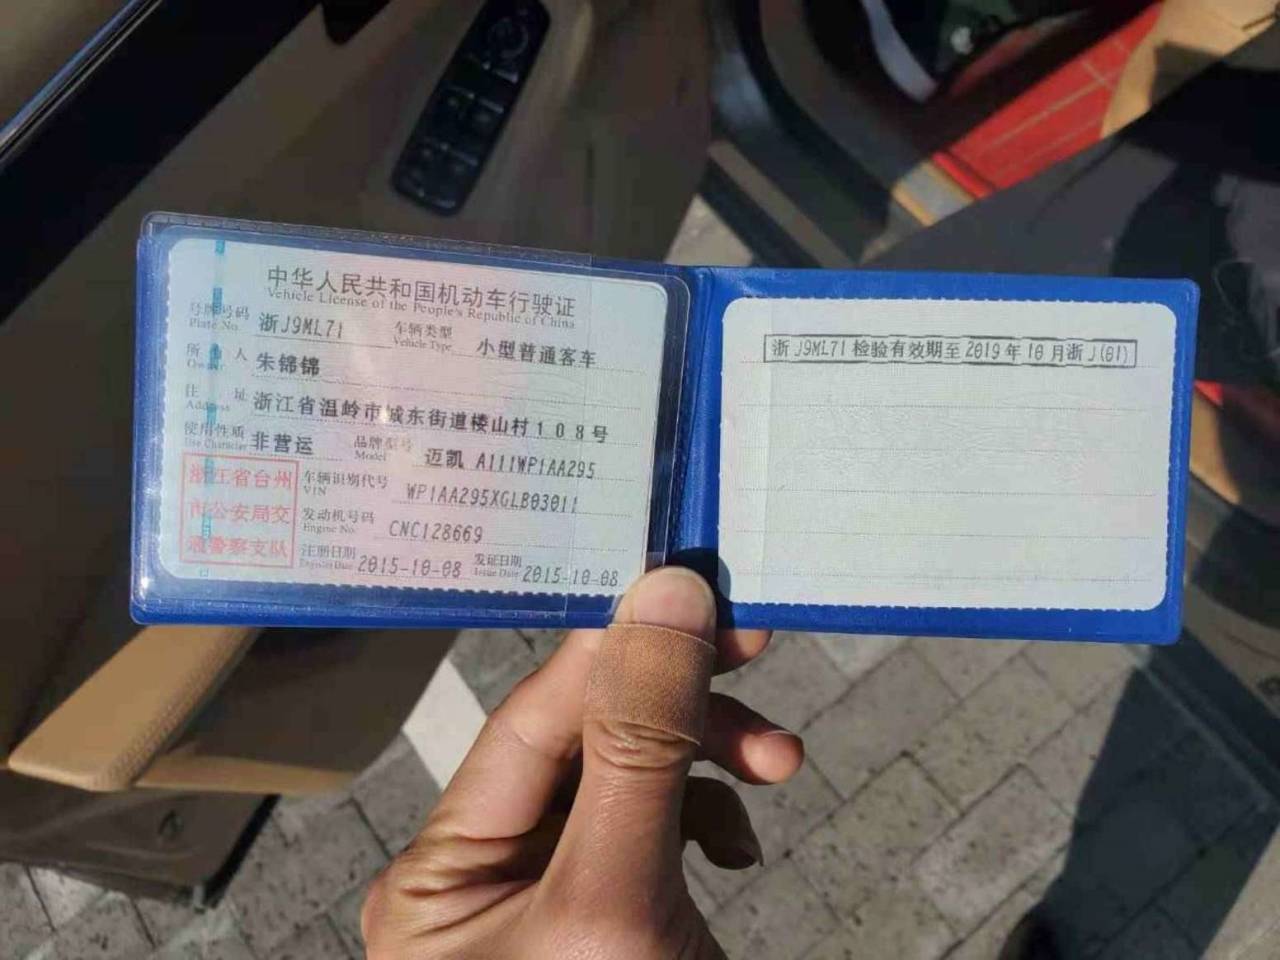 中华人民共和国机动车行驶证
Vehicle License of the People's Republic of China
号牌号码 浙J9ML71 车辆类型 小型普通客车
Plate No. Vehicle Type
所有人 朱锦锦
Owner
住址 浙江省温岭市城东街道楼山村108号
Address
使用性质 非营运 品牌型号 迈凯 A111WP1AA295
Use Character Model
浙江省台州
市公安局交
通警察支队
车辆识别代号 WP1AA295XGLB03011
VIN
发动机号码 CNC128669
Engine No.
注册日期 2015-10-08 发证日期 2015-10-08
Register Date Issue Date
浙J9ML71检验有效期至2019年10月浙J(01)